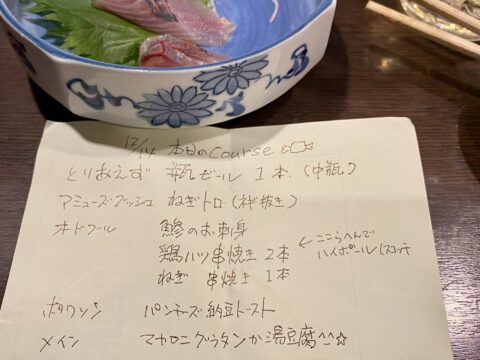 12/14 本日のcourse
とりあえず 瓶ビール 1本 (中瓶)
アミューズブッシュ ねぎトロ (ネギ抜き)
オドブル 鯵のお刺身
鶏ハツ串焼き 2本 ← ここらへんで
ハイボール(スコッチ
ねぎ 串焼き 1本
ポワソン パンチーズ納豆トースト
メイン マカロニグラタンか湯豆腐^^☆